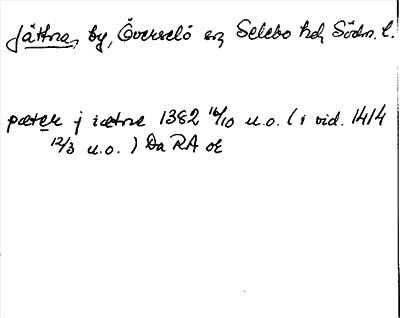 Jättna, by, Överselö sn, Selebo hd, Södm. l.
pæter j iætne 1382 16/10 u.o. (i vid. 1414
12/3 u.o.) Da RA or